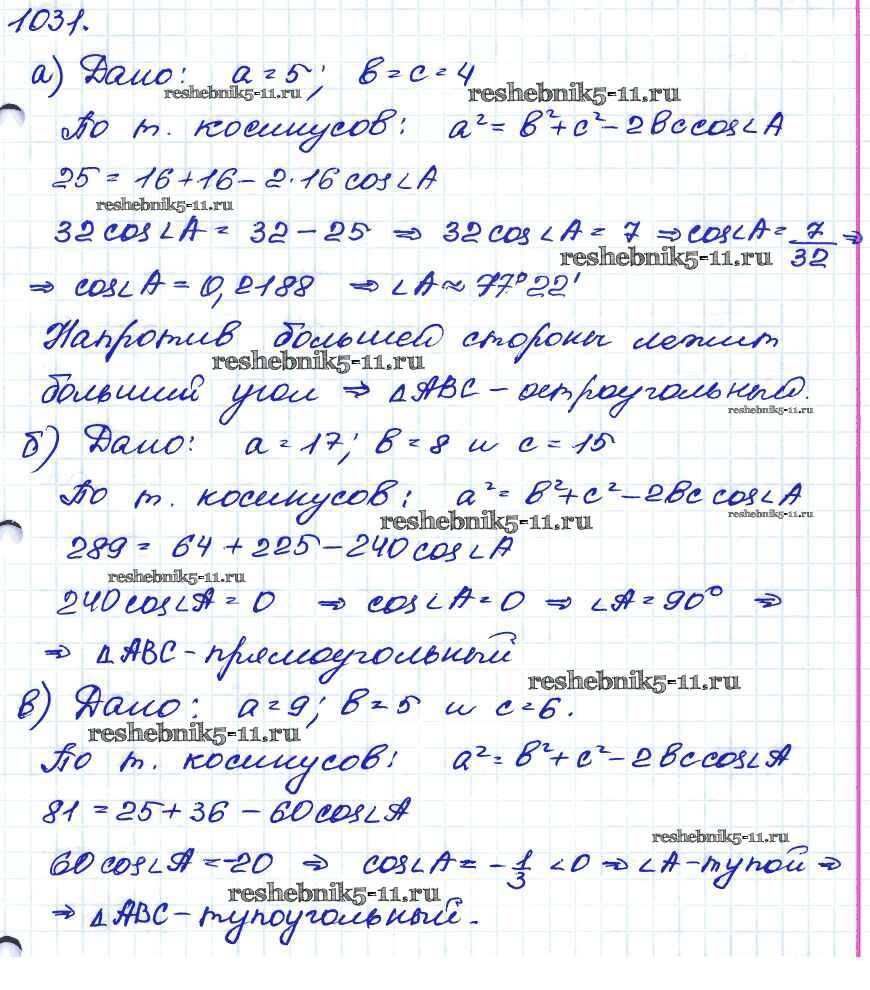 1031.
а) Дано: a = 5; b = c = 4
reshebnik5-11.ru reshebnik5-11.ru
По т. косинусов: a² = b² + c² - 2bc cos∠A
25 = 16 + 16 - 2·16 cos∠A
reshebnik5-11.ru
32 cos∠A = 32 - 25 ⇒ 32 cos∠A = 7 ⇒ cos∠A = 7/32 ⇒
reshebnik5-11.ru
⇒ cos∠A = 0,2188 ⇒ ∠A ≈ 77°22'
Напротив большей стороны лежит
reshebnik5-11.ru
больший угол ⇒ △ABC - остроугольный.
reshebnik5-11.ru
б) Дано: a = 17; b = 8 и c = 15
По т. косинусов: a² = b² + c² - 2bc cos∠A
reshebnik5-11.ru reshebnik5-11.ru
289 = 64 + 225 - 240 cos∠A
reshebnik5-11.ru
240 cos∠A = 0 ⇒ cos∠A = 0 ⇒ ∠A = 90° ⇒
⇒ △ABC - прямоугольный
reshebnik5-11.ru
в) Дано: a = 9; b = 5 и c = 6.
reshebnik5-11.ru
По т. косинусов: a² = b² + c² - 2bc cos∠A
81 = 25 + 36 - 60 cos∠A
reshebnik5-11.ru
60 cos∠A = -20 ⇒ cos∠A = -1/3 < 0 ⇒ ∠A - тупой ⇒
reshebnik5-11.ru
⇒ △ABC - тупоугольный.